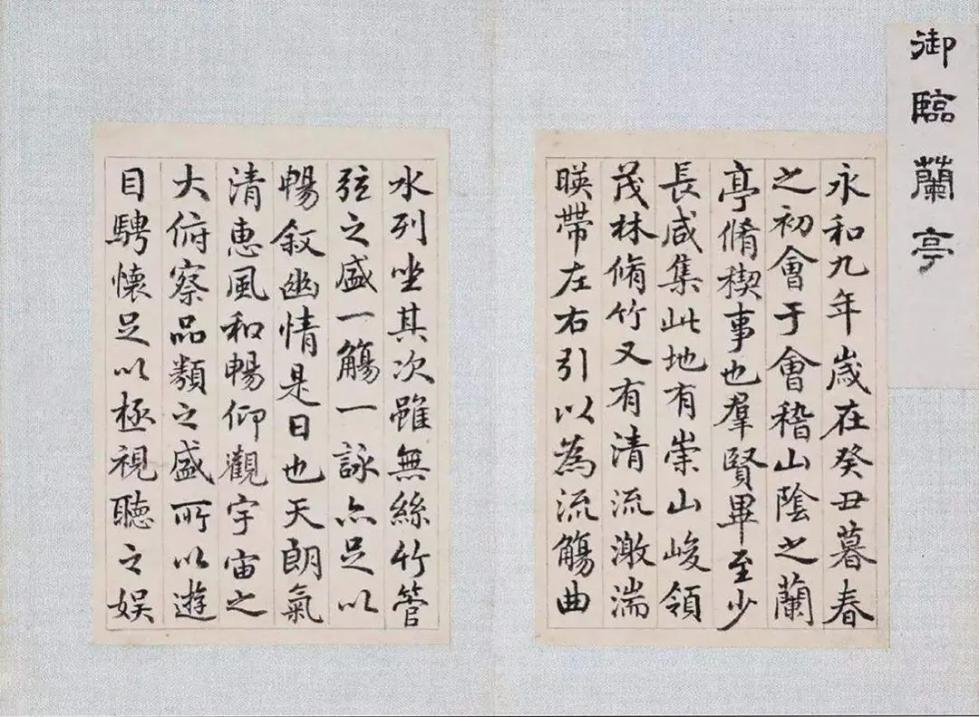 御臨蘭亭
永和九年歲在癸丑暮春
之初會于會稽山陰之蘭
亭脩稧事也羣賢畢至少
長咸集此地有崇山峻領
茂林脩竹又有清流激湍
暎帶左右引以為流觴曲
水列坐其次雖無絲竹管
弦之盛一觴一詠亦足以
暢叙幽情是日也天朗氣
清惠風和暢仰觀宇宙之
大俯察品類之盛所以遊
目騁懷足以極視聽之娱